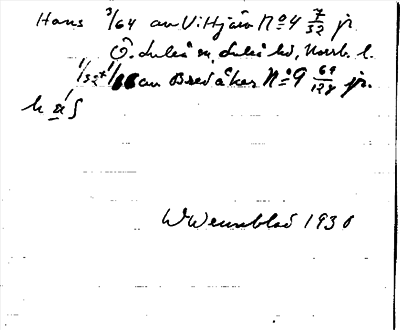 Hans 3/64 av Vittjärv No 4 7/32 jr
Ö. Luleå sn, Luleå hd, Norrb. l.
1/32 + 1/66 av Bredåker No 9 69/128 jr.
1930